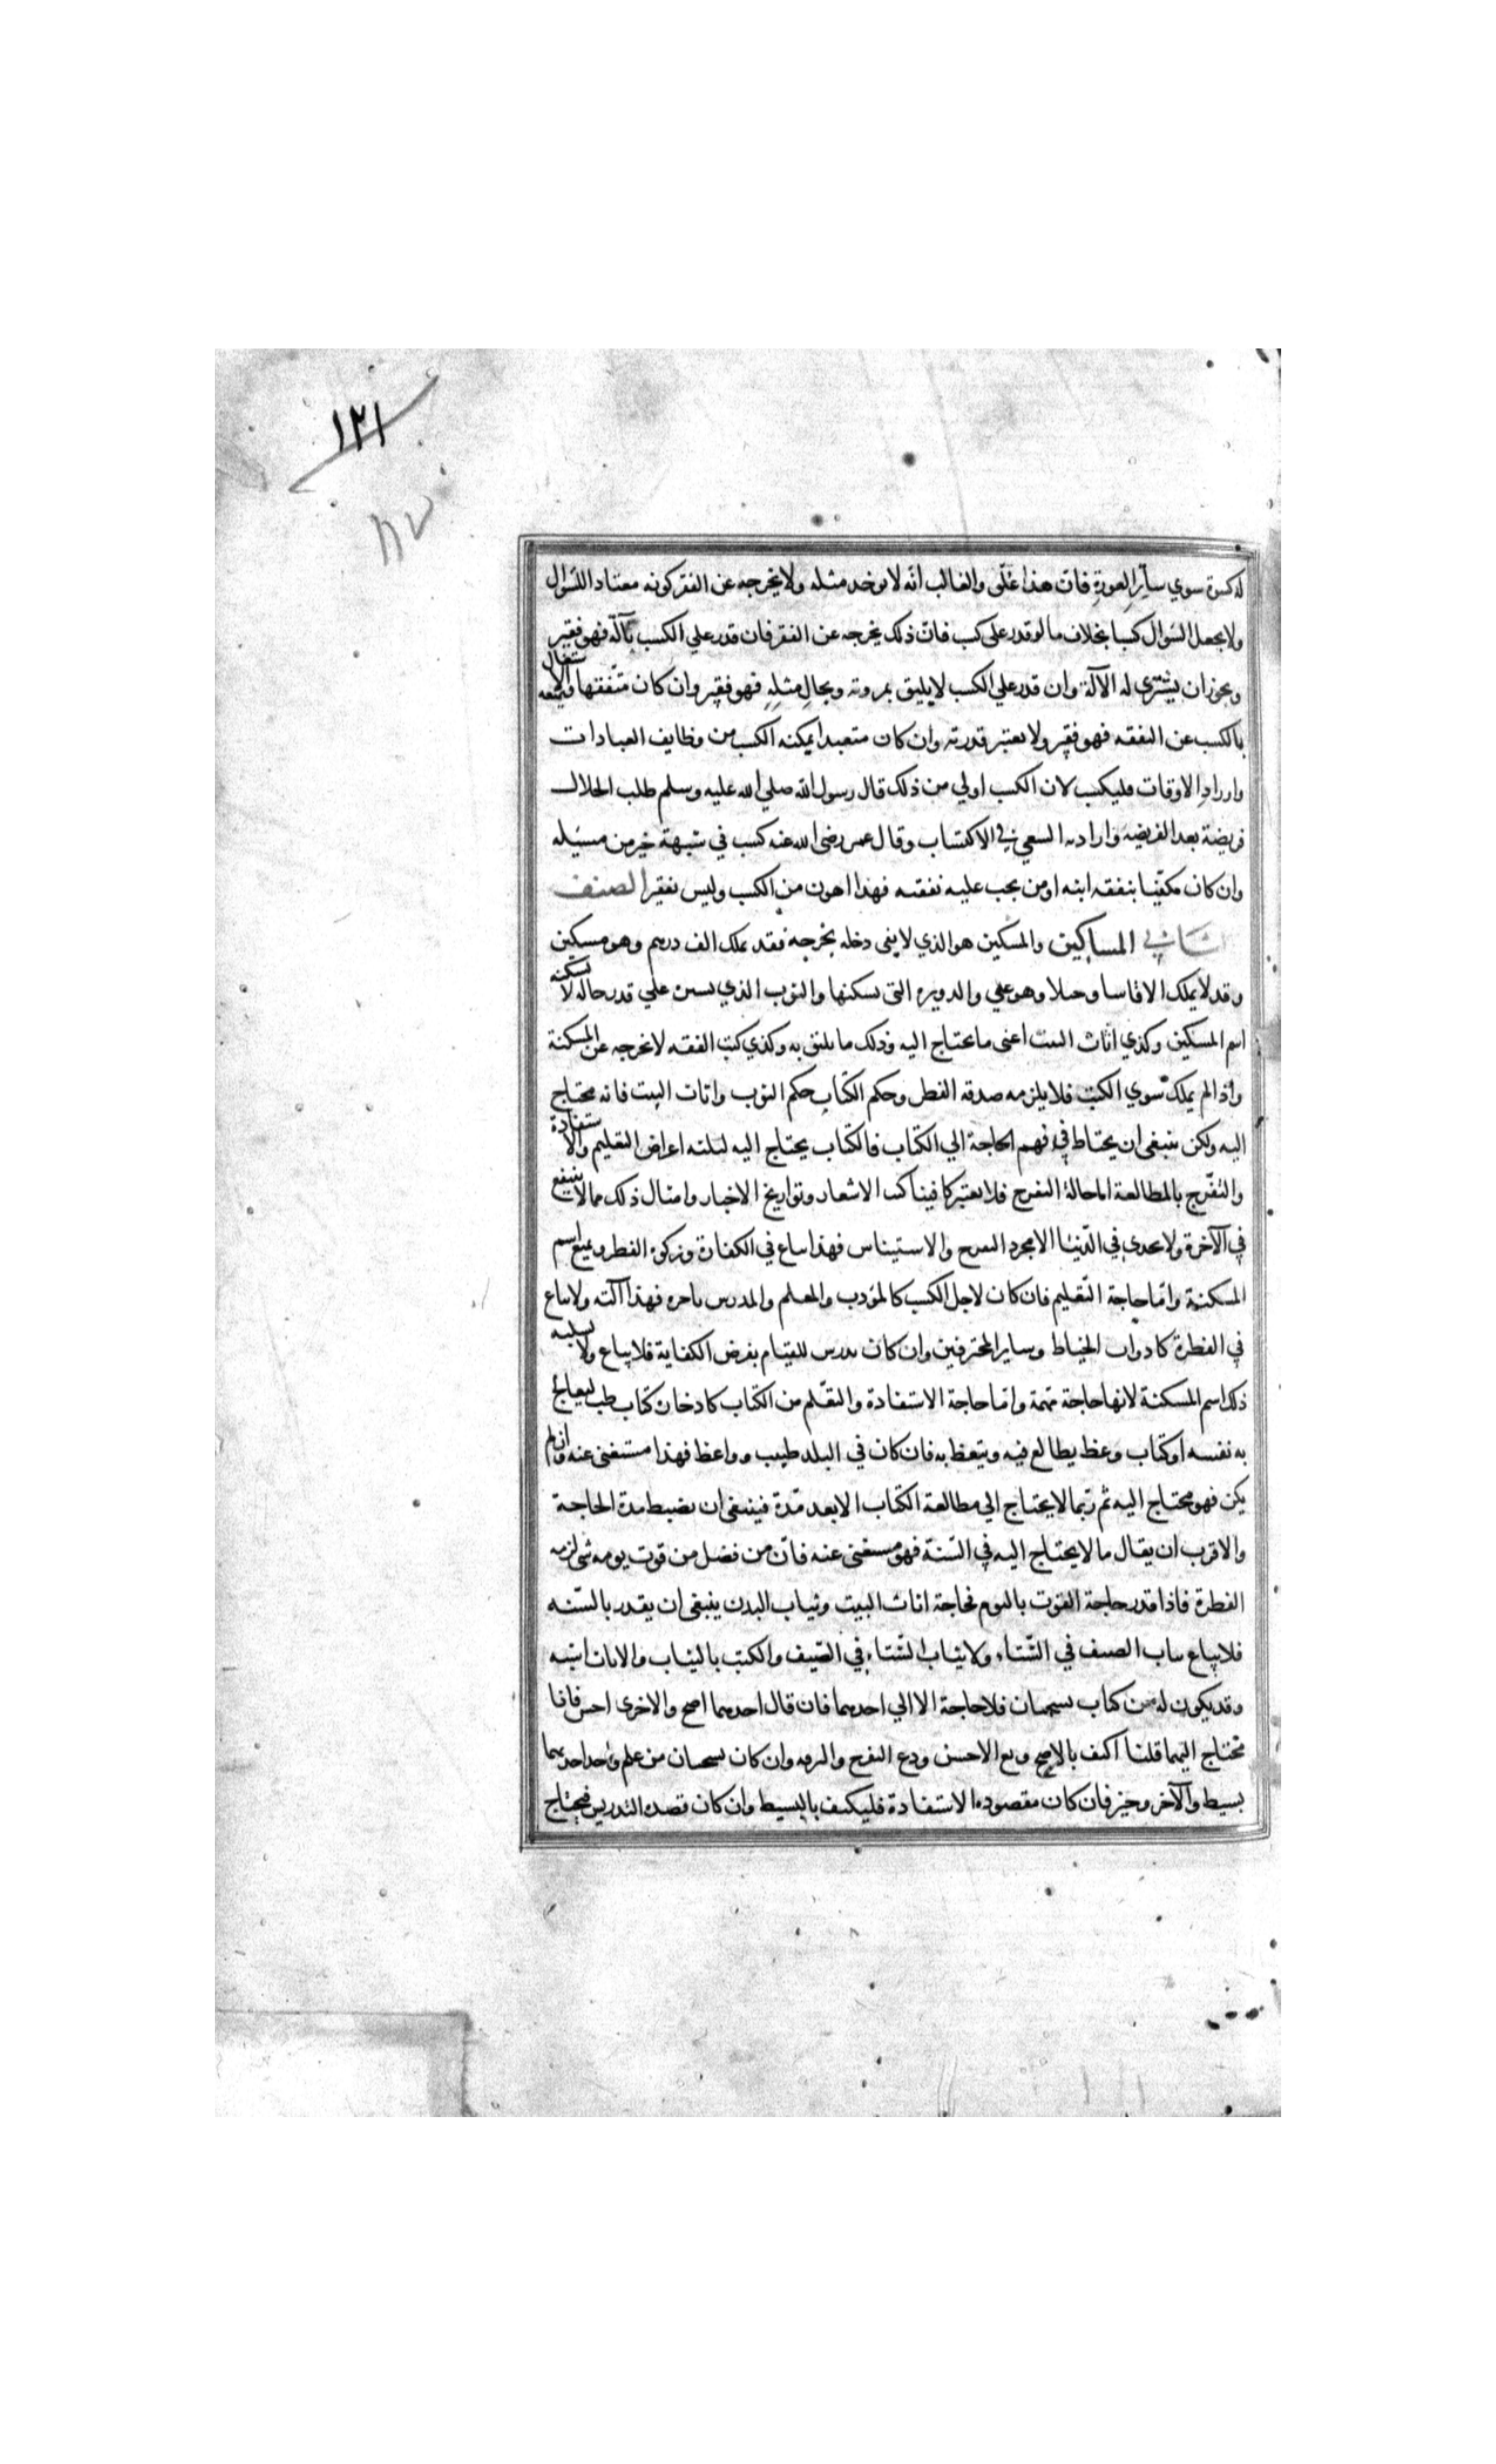 ١٢١
له كسوة سوي ساتر العورة فان هذا غلّو والغالب انه لا يوخد مثله ولا يخرجه عن الفقر كونه معتاد اللسّوال
ولا يجعل السّوال كسبا بخلاف ما لو قدر على كسب فان ذلك يخرجه عن الفقر فان قدر علي الكسب بآلة فهو فقير
ويجوز ان يشترى له الآلة وان قدر علي الكسب لا يليق بمروته وبحال مثله فهو فقير وان كان متفقها فيمنعه الاشتغال
بالكسب عن التفقه فهو فقير ولا يعتبر قدرته وان كان متعبدا يمكنه الكسب من وظايف العبادات
واوراد الاوقات فليكسب لان الكسب اولي من ذلك قال رسول الله صلي الله عليه وسلم طلب الحلال
فريضة بعد الفريضه واراد به السعي في الاكتساب وقال عمر رضى الله عنه كسب في شبهة خير من مسئله
وان كان مكفيا بنفقه ابنه او من يجب عليه نفقته فهذا اهون من الكسب وليس بفقير الصنف
الثاني المساكين والمسكين هو الذي لا يفى دخله بخرجه فقد يملك الف درهم وهو مسكين
وقد لا يملك الا فاسا وحبلا وهو غني والدويره التى يسكنها والثوب الذي يستره علي قدر حاله لا يسلبه
اسم المسكين وكذي اثاث البيت اعنى ما يحتاج اليه وذلك ما يليق به وكذي كتب الفقه لا يخرجه عن المسكنة
واذا لم يملك سوي الكتب فلا يلزمه صدقه الفطر وحكم الكتاب حكم الثوب واثاث البيت فانه محتاج
اليه ولكن ينبغى ان يحتاط في فهم الحاجة الي الكتاب فالكتاب يحتاج اليه لثلثه اغراض التعليم والاستفادة
والتفرّج بالمطالعة اما حالة التفرج فلا يعتبر كاقتنا كتب الاشعار وتواريخ الاخبار وامثال ذلك مما لا ينفع
في الآخرة ولا يجدى في الدّنيا الا مجرد التفرج والاستيناس فهذا يباع في الكفارة وزكوة الفطر ويمنع اسم
المسكنة وامّا حاجة التّعليم فان كان لاجل الكسب كالمؤدب والمعلم والمدرس باجره فهذا آلته ولا يباع
في الفطرة كادوات الخياط وساير المحترفين وان كان يدرس للقيام بفرض الكفاية فلا يباع ولا يسلبه
ذلك اسم المسكنة لانها حاجة مهمة وامّا حاجة الاستفادة والتعّلم من الكتاب كادخاره كتاب طب ليعالج
به نفسه او كتاب وعظ يطالع فيه ويتعظ به فان كان في البلد طبيب وواعظ فهذا مستغنى عنه وان لم
يكن فهو محتاج اليه ثم ربّما لا يحتاج الي مطالعة الكتاب الا بعد مّدة فينبغى ان يضبط مدة الحاجة
والاقرب ان يقال ما لا يحتاج اليه في السّنة فهو مستغنى عنه فانّ من فضل من قوت يومه شى لزمه
الفطرة فاذا قدر حاجة القوت باليوم فحاجة اثاث البيت وثياب البدن ينبغى ان يقدر بالسّنه
فلا يباع ثياب الصيف في الشّتاء ولا ثياب الشّتاء في الصّيف والكتب بالثياب والاثاث اشبه
وقد يكون له من كتاب نسختان فلا حاجة الا الي احدهما فان قال احدهما اصح والاخرى احسن فانا
محتاج اليهما قلنا اكتف بالاصح وبع الاحسن ودع التفرج والترفه وان كان نسختان من علم واحد احدهما
بسيط والآخر وجيز فان كان مقصوده الاستفادة فليكتف بالبسيط وان كان قصده التدريس فيحتاج